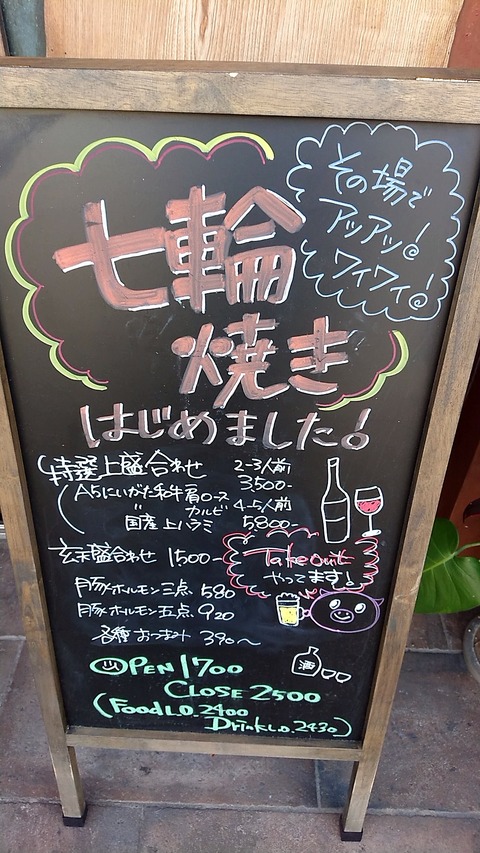 その場で
アッアッ!
ワイワイ!
七輪
焼き
はじめました!
特選上盛合わせ 2-3人前
3500-
(A5にいがた和牛肩ロース
〃 カルビ 4-5人前
国産上ハラミ 5800-
盛合わせ 1500-
Take out
やってます!
豚ホルモン三点 580
豚ホルモン五点 920
各種おつまみ 390〜
酒
OPEN 1700
CLOSE 2500
(Food L.O. 2400
Drink L.O. 2430)